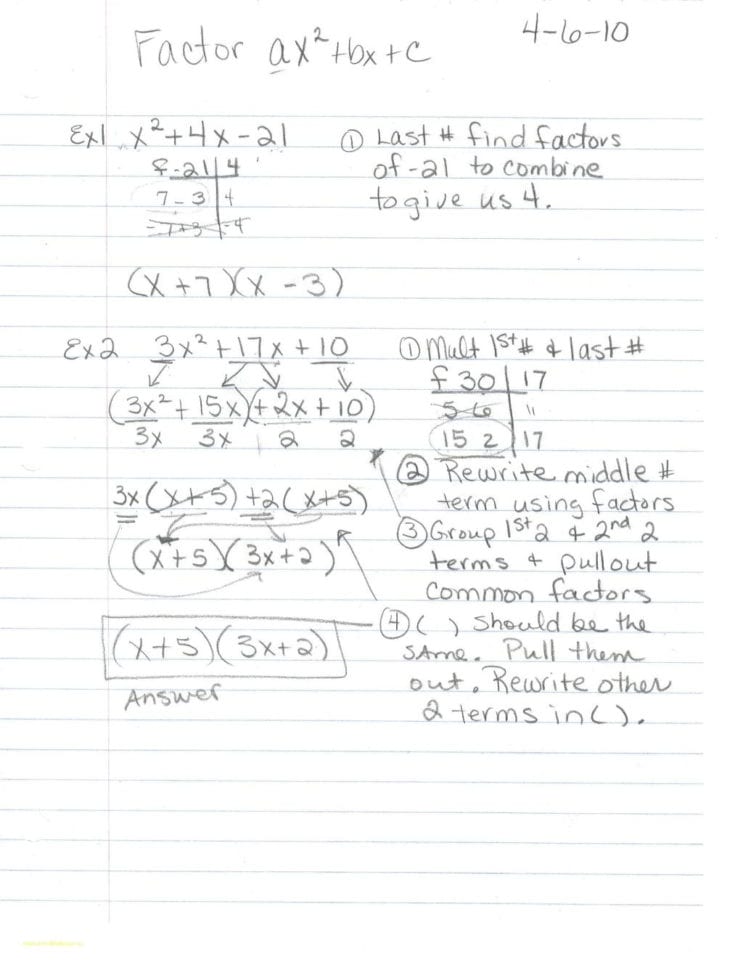 4-6-10
Factor ax²+bx+c
Ex1 x²+4x-21
f -21 | 4
7 -3 | 4
-7+3 | -4
(x+7)(x-3)
① Last # find factors
of -21 to combine
to give us 4.
Ex2 3x²+17x+10
(3x²+15x)(+2x+10)
3x 3x 2 2
3x(x+5)+2(x+5)
(x+5)(3x+2)
(x+5)(3x+2)
Answer
① Mult 1st # & last #
f 30 | 17
5 6 | 11
15 2 | 17
② Rewrite middle #
term using factors
③ Group 1st 2 & 2nd 2
terms & pullout
common factors
④ ( ) should be the
same. Pull them
out. Rewrite other
2 terms in ( ).